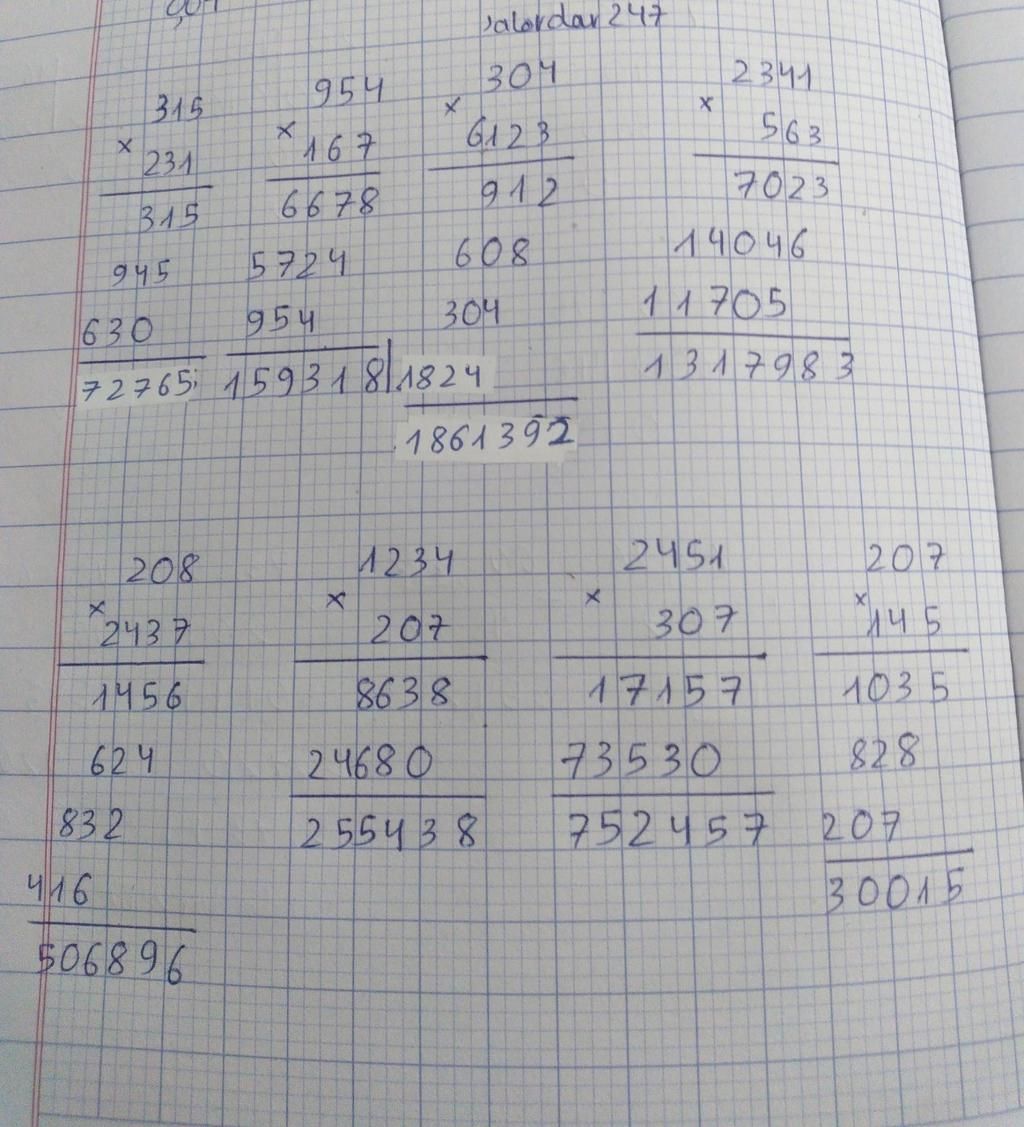 247
315 954 304 2341
× 231 × 167 × 6123 × 563
315 6678 912 7023
945 5724 608 14046
630 954 304 11705
72765 159318 1824 1317983
1861392
208 1234 2451 207
× 2437 × 207 × 307 × 145
1456 8638 17157 1035
624 24680 73530 828
832 255438 752457 207
416 30015
506896